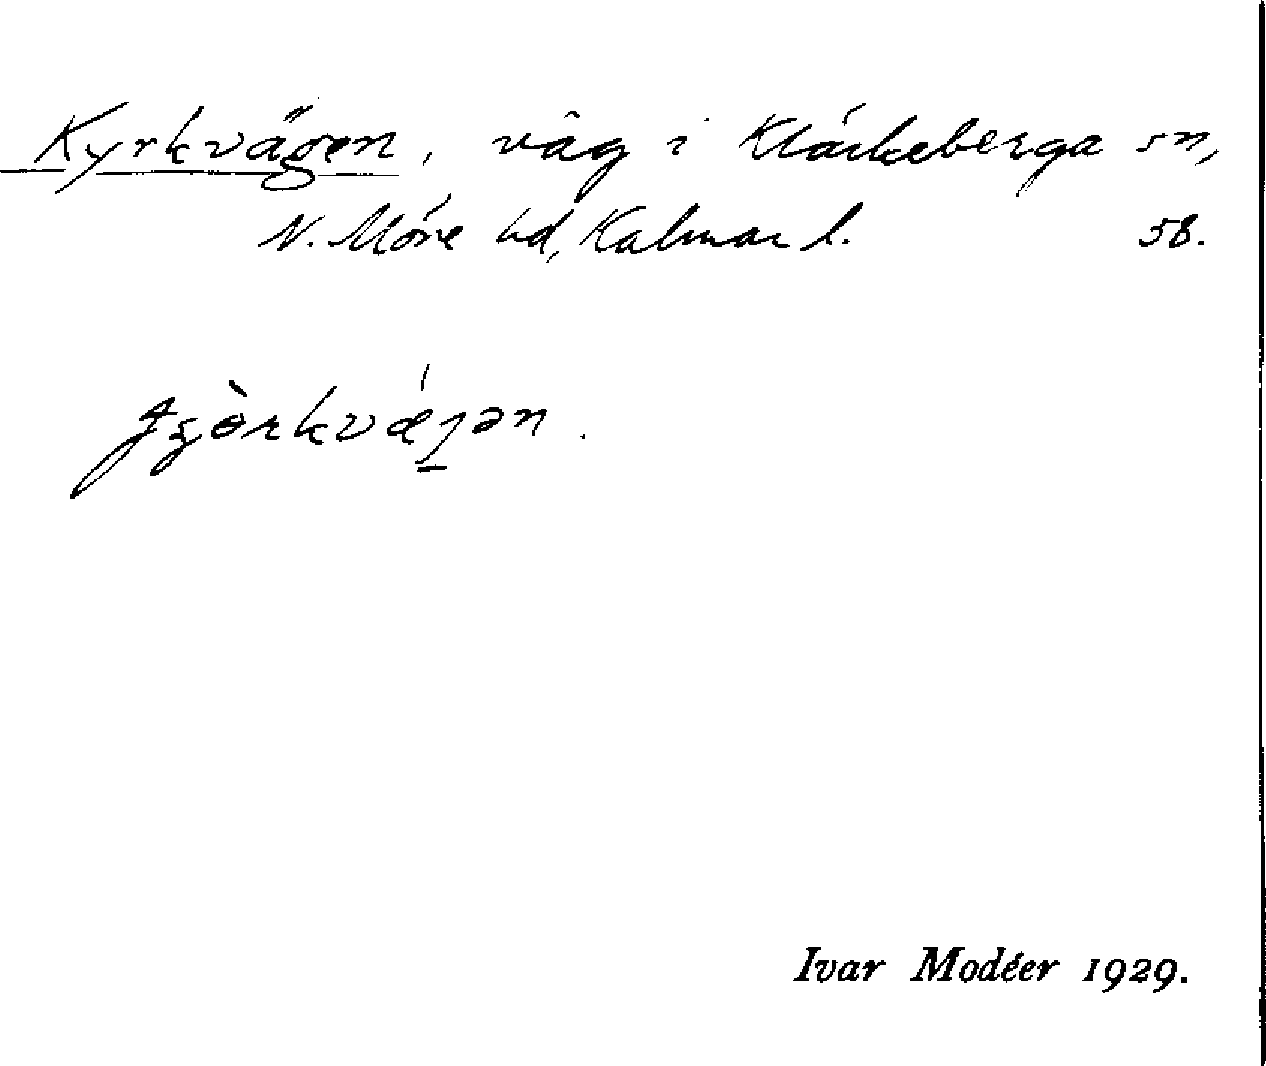 Kyrkvägen, väg i Kläckeberga sn,
N. Möre hd, Kalmar l. 58.
Ivar Modéer 1929.